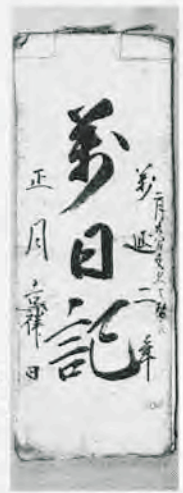 萬延二年
萬日記
正月吉祥日